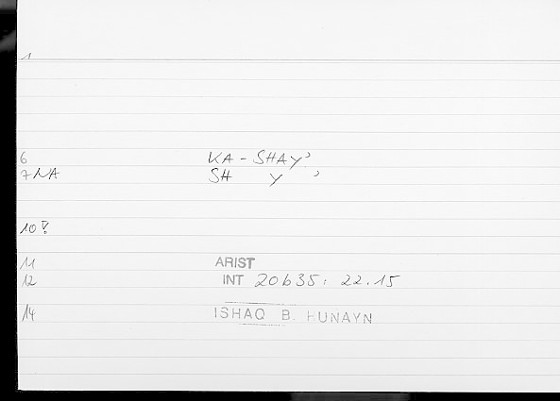 1
6 KA - SHAY'
7 NA SH Y '
10
11 ARIST
12 INT 20b35; 22.15
14 ISHAQ B. HUNAYN